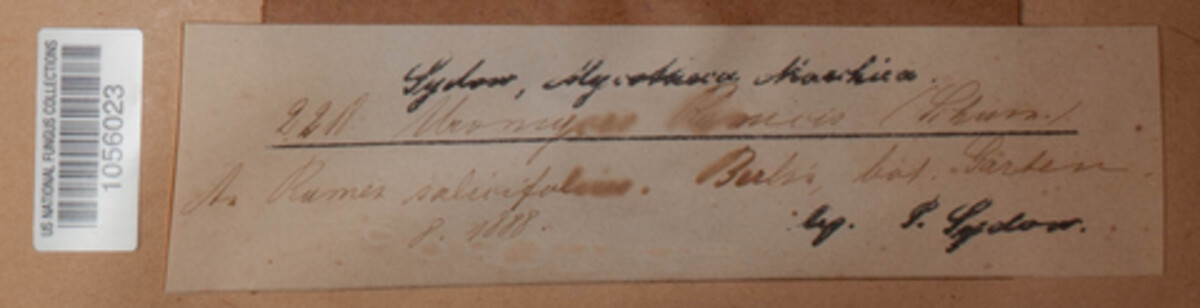 US NATIONAL FUNGUS COLLECTIONS
1056023
Sydow, Mycotheca Marchica.
Uromyces Rumicis (Schum.)
A. Rumex salicifolius. Berlin, bot. Garten.
8. 1888.
lg. P. Sydow.